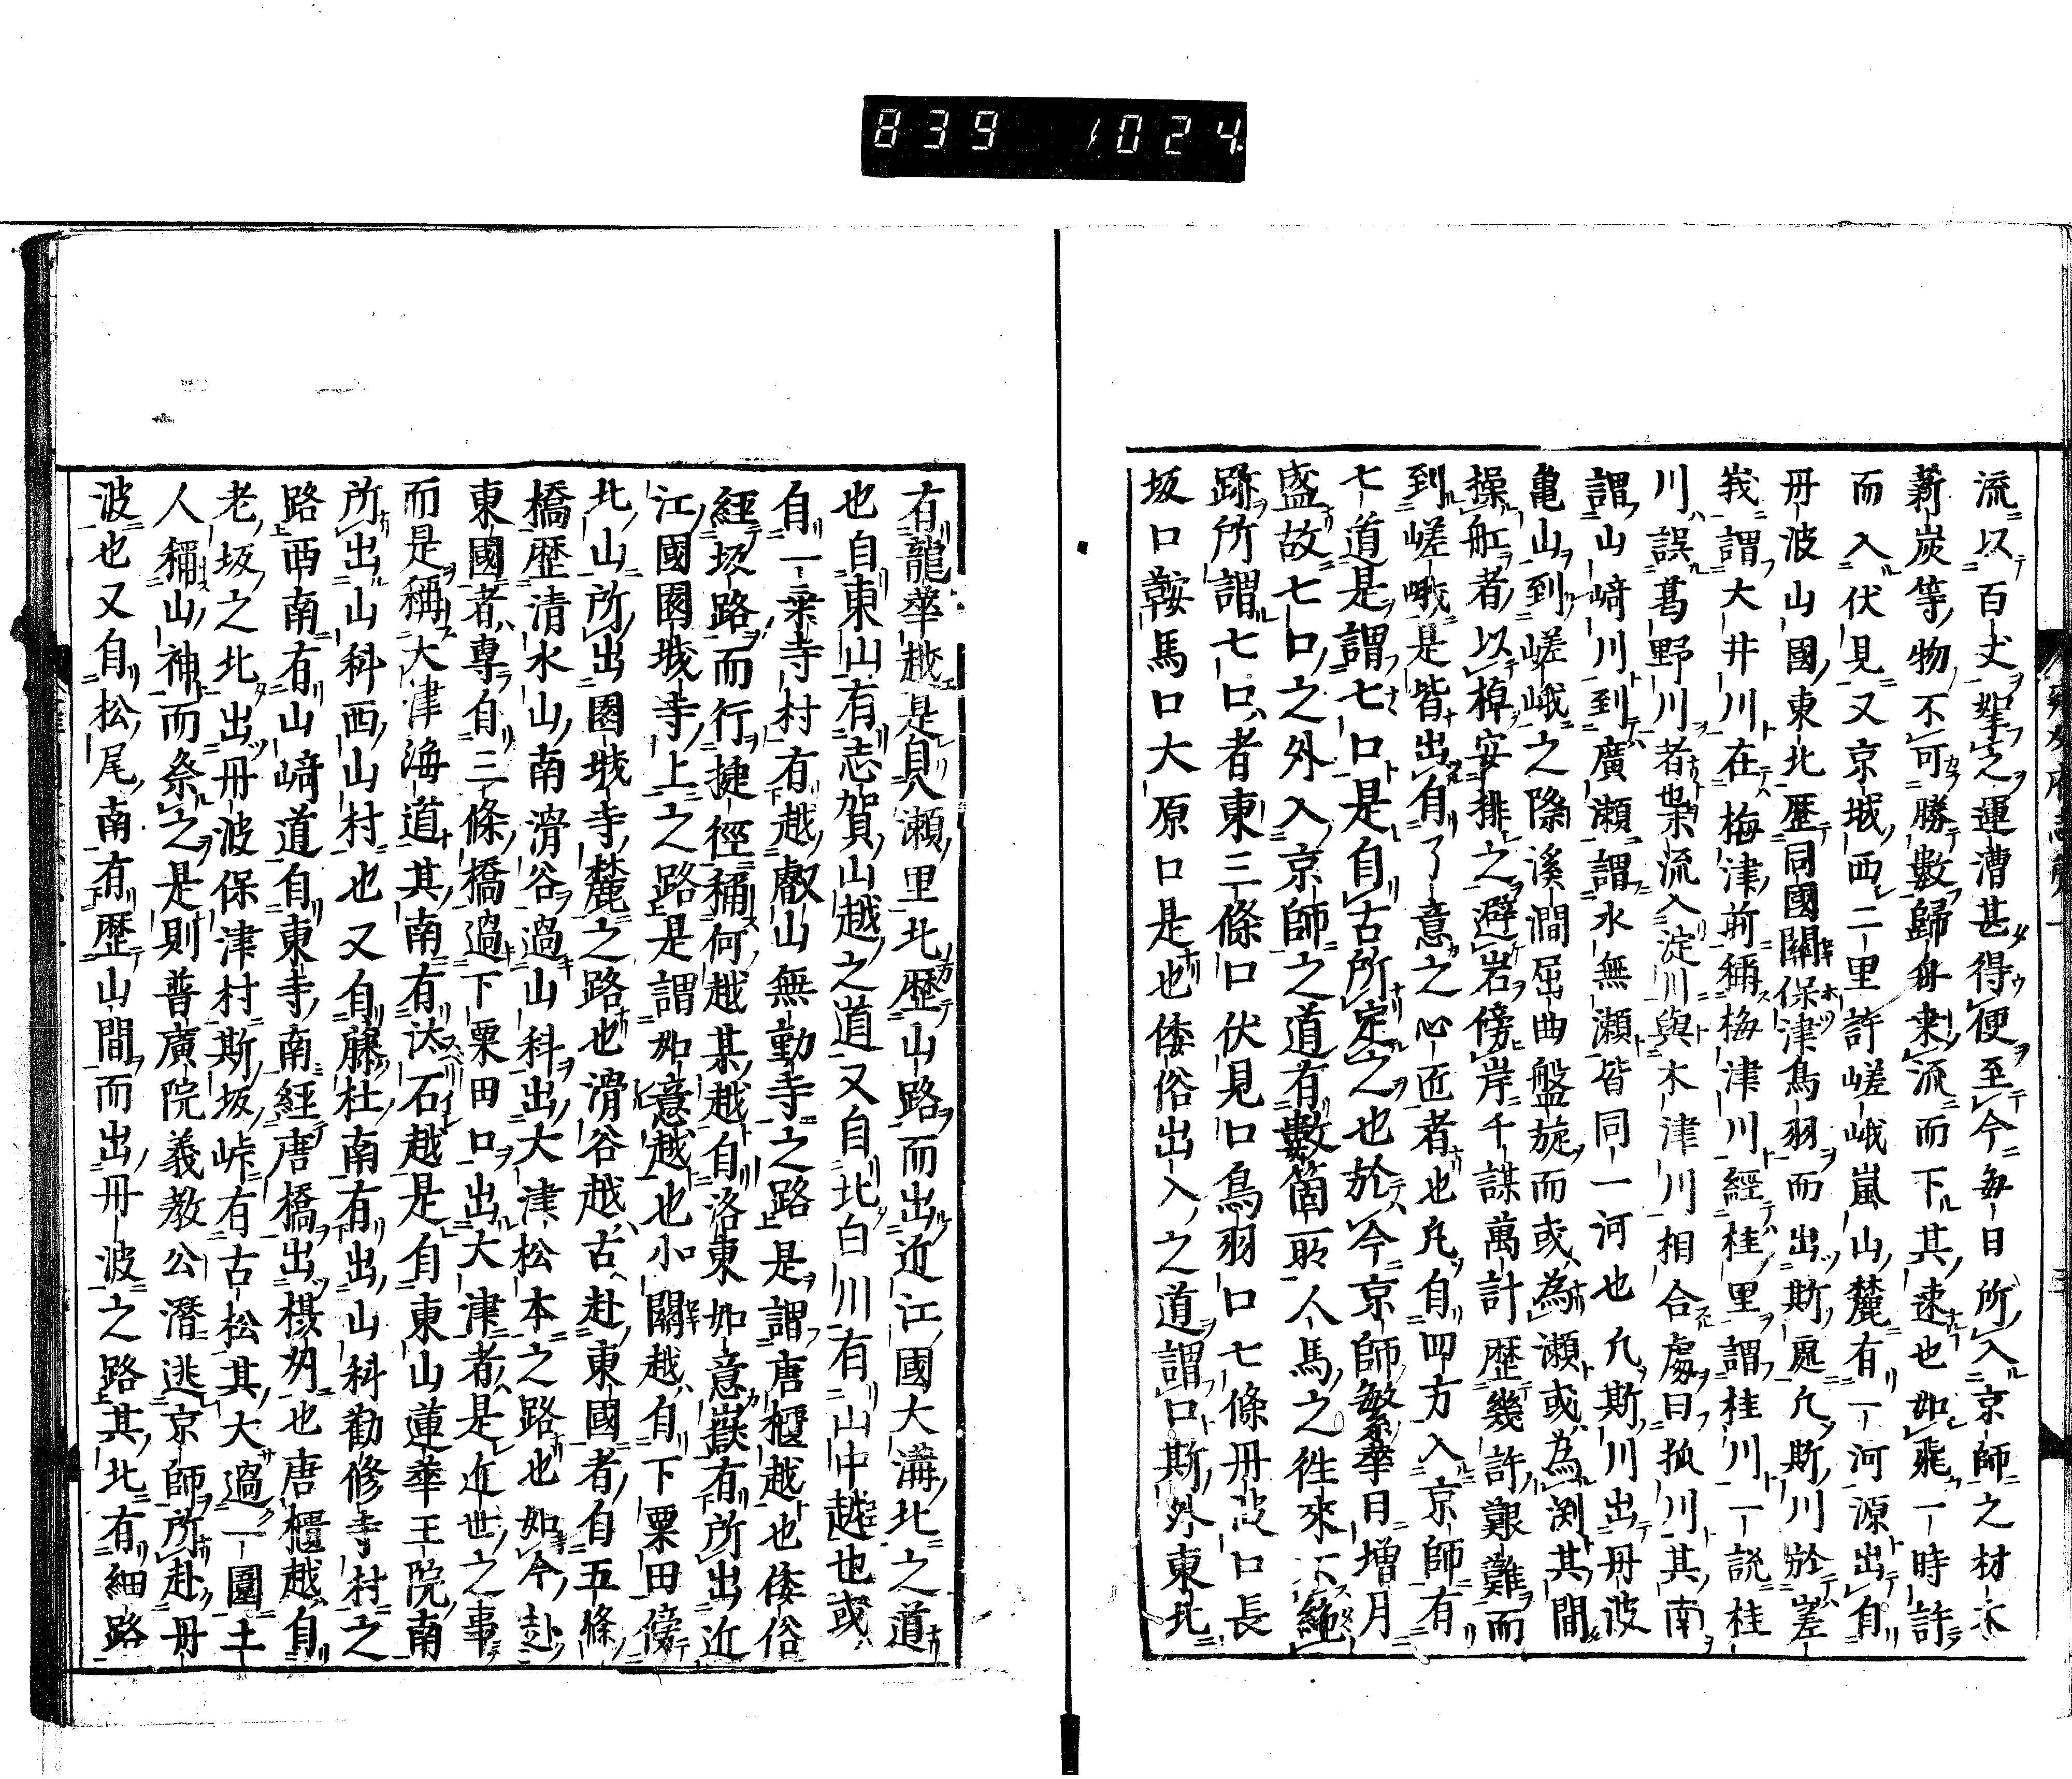 839 1024
流以百丈牽之運漕甚得便至今毎日所入京師之材木
薪炭等物不可勝數歸舟乗流而下其速也如飛一時許
而入伏見又京城西二里許嵯峨嵐山麓有一河源出自
丹波山國東北歴同國關保津鳥羽而出斯處凢斯川於嵳
峩謂大井川在梅津前稱梅津川經桂里謂桂川一説桂
川誤葛野川者也桒流入淀川與木津川相合處曰狐川其南
謂山﨑川到廣瀬謂水無瀬皆同一河也凢斯川出丹波
亀山到嵯峨之際溪澗屈曲盤旋而或為瀬或為渕其間
操舡者以棹安排之避岩傍岸千謀萬計歴幾許艱難而
到嵯峨是皆出自了意之心匠者也凢自四方入京師有
七道是謂七口是自古所定之也於今京師繁華日増月
盛故七口之外入京師之道有數箇所人馬之徃來不絶
跡所謂七口者東三條口伏見口鳥羽口七條丹波口長
坂口鞍馬口大原口是也倭俗出入之道謂口斯外東北
有龍華越是自八瀬里北歴山路而出近江國大溝北之道
也自東山有志賀山越之道又自北白川有山中越也或
自一乗寺村有越叡山無動寺之路是謂唐櫃越也倭俗
經坂路而行捷徑稱何越某越自洛東如意嶽有所出近
江國園城寺上之路是謂如意越也小關越自下粟田傍
北山所出園城寺麓之路也滑谷越古赴東國者自五條
橋歴清水山南滑谷過山科出大津松本之路也如今赴
東國者專自三條橋過下粟田口出大津者是近世之事
而是稱大津海道其南有汰石越是自東山蓮華王院南
所出山科西山村也又自藤杜南有出山科勸修寺村之
路西南有山﨑道自東寺南經唐橋出楊㘭也唐櫃越自
老坂之北出丹波保津村斯坂峠有古松其大過一圍土
人稱山神而祭之是則普廣院義教公潛逃京師所赴丹
波也又自松尾南有歴山間而出丹波之路其北有細路